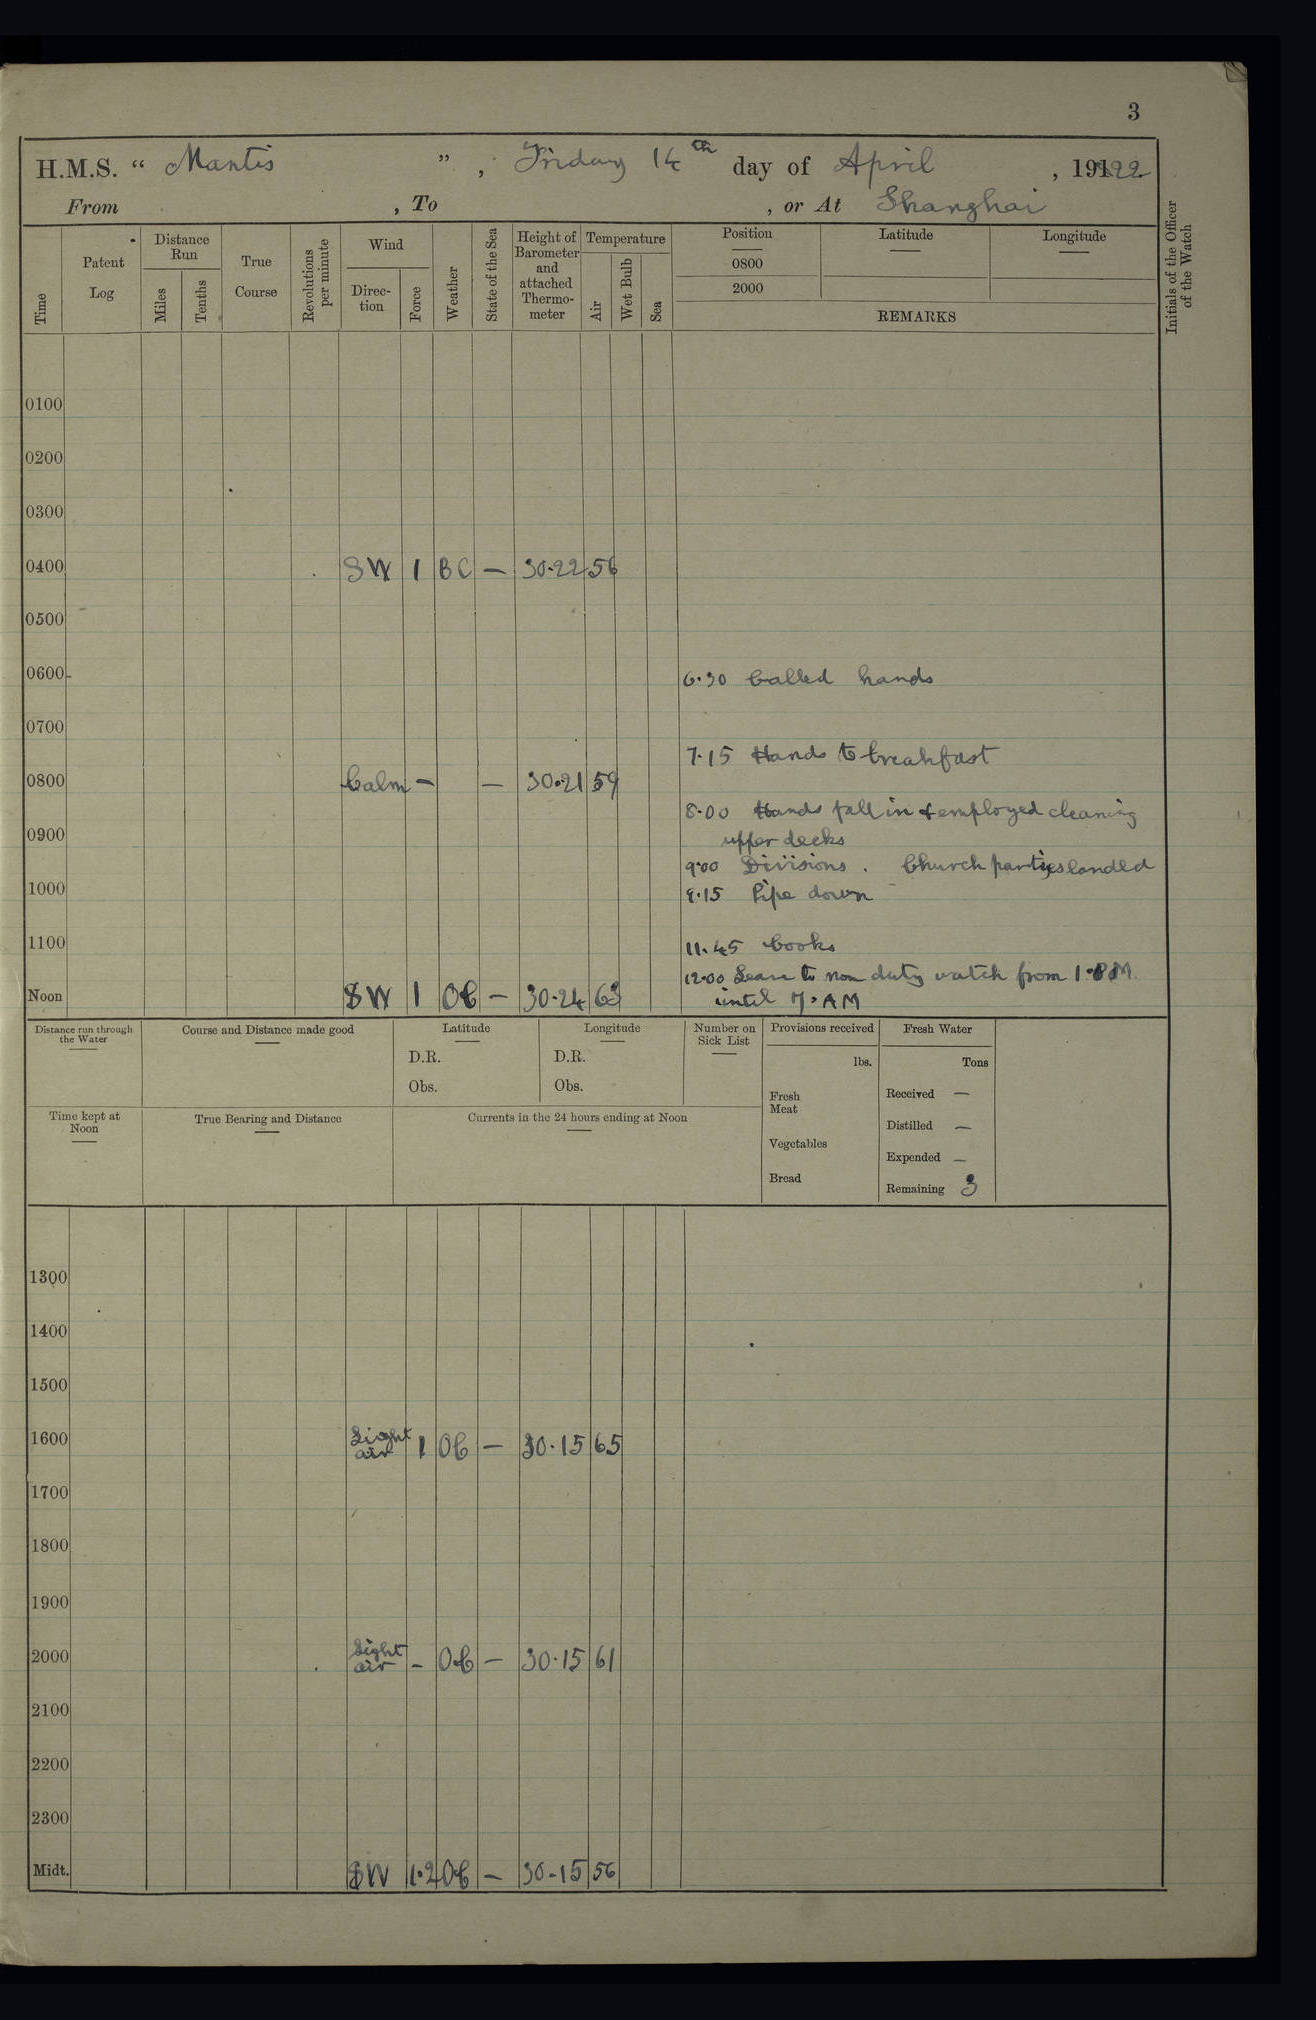 3
H.M.S. " Mantis " , Friday 14th day of April , 1922
From , To , or At Shanghai
Time
Patent Log
Distance Run
Miles
Tenths
True Course
Revolutions per minute
Wind
Direction
Force
Weather
State of the Sea
Height of Barometer and attached Thermometer
Temperature
Air
Wet Bulb
Sea
Position
0800
2000
Latitude
Longitude
REMARKS
Initials of the Officer of the Watch
0100
0200
0300
0400 SW 1 BC — 30·22 56
0500
0600
6·30 Called hands
0700
7·15 Hands to breakfast
0800 Calm - — 30·21 59
8·00 Hands fall in & employed cleaning
upper decks
0900
9·00 Divisions . Church parties landed
1000
9·15 Pipe down
1100
11.45 Cooks
12·00 Leave to non duty watch from 1·PM
Noon SW 1 OC — 30·24 63
until 7·AM
Distance run through the Water
Course and Distance made good
Latitude
D.R.
Obs.
Longitude
D.R.
Obs.
Number on Sick List
Provisions received
lbs.
Fresh Meat
Vegetables
Bread
Fresh Water
Tons
Received —
Distilled —
Expended —
Remaining 3
Time kept at Noon
True Bearing and Distance
Currents in the 24 hours ending at Noon
1300
1400
1500
1600 Light air 1 OC — 30·15 65
1700
1800
1900
2000 Light air - OC — 30·15 61
2100
2200
2300
Midt. SW 1·2 OC — 30-15 56